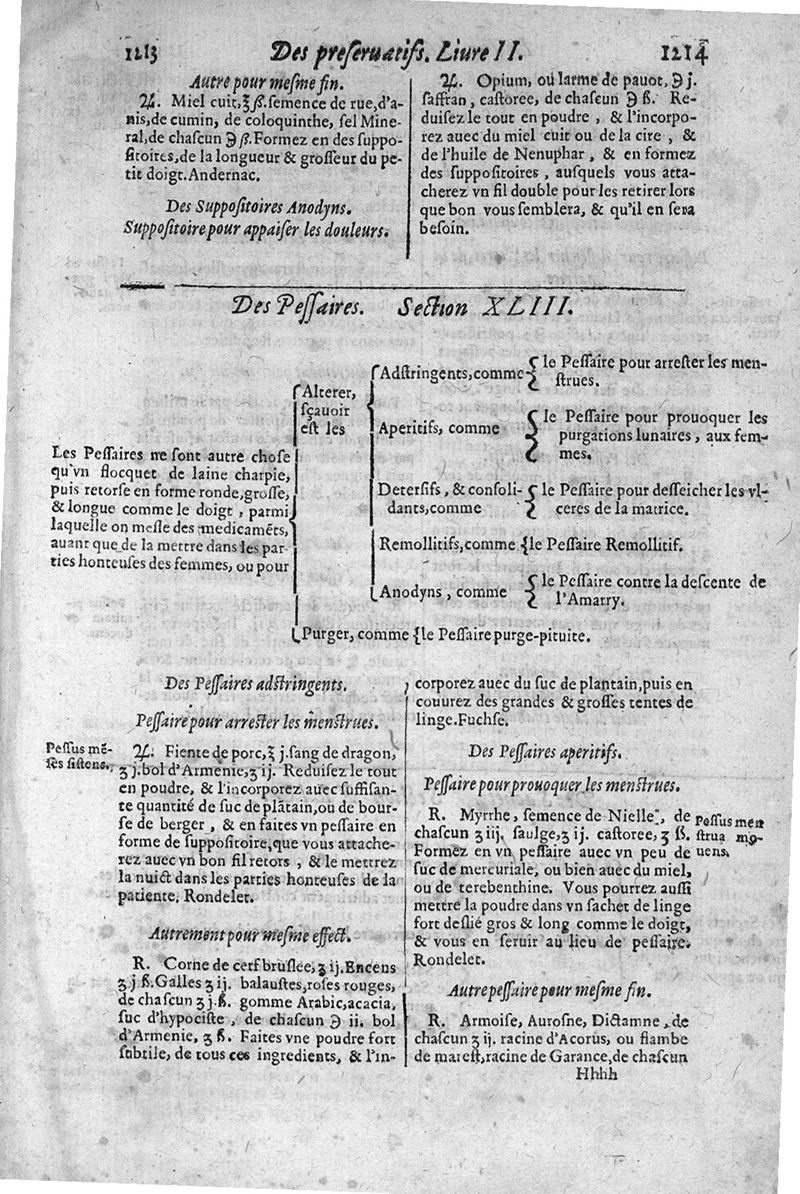 1213
Des preſeruatifs. Liure II.
1214
Autre pour meſme fin.
♃. Miel cuit, ʒ ß. ſemence de rue, d'a-
nis, de cumin, de coloquinthe, ſel Mine-
ral, de chaſcun ℈ ß. Formez en des ſuppo-
ſitoires, de la longueur & groſſeur du pe-
tit doigt. Andernac.
Des Suppoſitoires Anodyns.
Suppoſitoire pour appaiſer les douleurs.
♃. Opium, ou larme de pauot, ℈ j.
ſaffran, caſtoree, de chaſcun ℈ ß. Re-
duiſez le tout en poudre, & l'incorpo-
rez auec du miel cuit ou de la cire, &
de l'huile de Nenuphar, & en formez
des ſuppoſitoires, auſquels vous atta-
cherez vn fil double pour les retirer lors
que bon vous ſemblera, & qu'il en ſera
beſoin.
Des Peſſaires. Section XLIII.
Les Peſſaires ne ſont autre choſe
qu'vn flocquet de laine charpie,
puis retorſe en forme ronde, groſſe,
& longue comme le doigt, parmi
laquelle on meſle des medicamẽts,
auant que de la mettre dans les par
ties honteuſes des femmes, ou pour
Alterer,
ſçauoir
eſt les
Adſtringents, comme
le Peſſaire pour arreſter les men-
ſtrues.
Aperitifs, comme
le Peſſaire pour prouoquer les
purgations lunaires, aux fem-
mes.
Deterſifs, & conſoli-
dants, comme
le Peſſaire pour deſſeicher les vl-
ceres de la matrice.
Remollitifs, comme {le Peſſaire Remollitif.
Anodyns, comme
le Peſſaire contre la deſcente de
l'Amarry.
Purger, comme {le Peſſaire purge-pituite.
Des Peſſaires adſtringents.
Peſſaire pour arreſter les menſtrues.
Peſſus mẽ-
ſes ſiſtens.
♃. Fiente de porc, ʒ j. ſang de dragon,
ʒ j. bol d'Armenie, ʒ ij. Reduiſez le tout
en poudre, & l'incorporez auec ſuffiſan-
te quantité de ſuc de plãtain, ou de bour-
ſe de berger, & en faites vn peſſaire en
forme de ſuppoſitoire, que vous attache-
rez auec vn bon fil retors, & le mettrez
la nuict dans les parties honteuſes de la
patiente. Rondelet.
Autrement pour meſme effect.
R. Corne de cerf bruſlee, ʒ ij. Encens
ʒ j ß. Galles ʒ ij. balauſtes, roſes rouges,
de chaſcun ʒ j. ß. gomme Arabic, acacia,
ſuc d'hypociſte, de chaſcun ℈ ii. bol
d'Armenie, ʒ ß. Faites vne poudre fort
ſubtile, de tous ces ingredients, & l'in-
corporez auec du ſuc de plantain, puis en
couurez des grandes & groſſes tentes de
linge. Fuchſe.
Des Peſſaires aperitifs.
Peſſaire pour prouoquer les menſtrues.
R. Myrrhe, ſemence de Nielle, de
chaſcun ʒ iij. ſaulge, ʒ ij. caſtoree, ʒ ß.
Formez en vn peſſaire auec vn peu de
ſuc de mercuriale, ou bien auec du miel,
ou de terebenthine. Vous pourrez auſſi
mettre la poudre dans vn ſachet de linge
fort deſlié gros & long comme le doigt,
& vous en ſeruir au lieu de peſſaire.
Rondelet.
Peſſus men
ſtrua mo-
uens.
Autre peſſaire pour meſme fin.
R. Armoiſe, Auroſne, Dictamne, de
chaſcun ʒ ij. racine d'Acorus, ou flambe
de mareſt, racine de Garance, de chaſcun
Hhhh